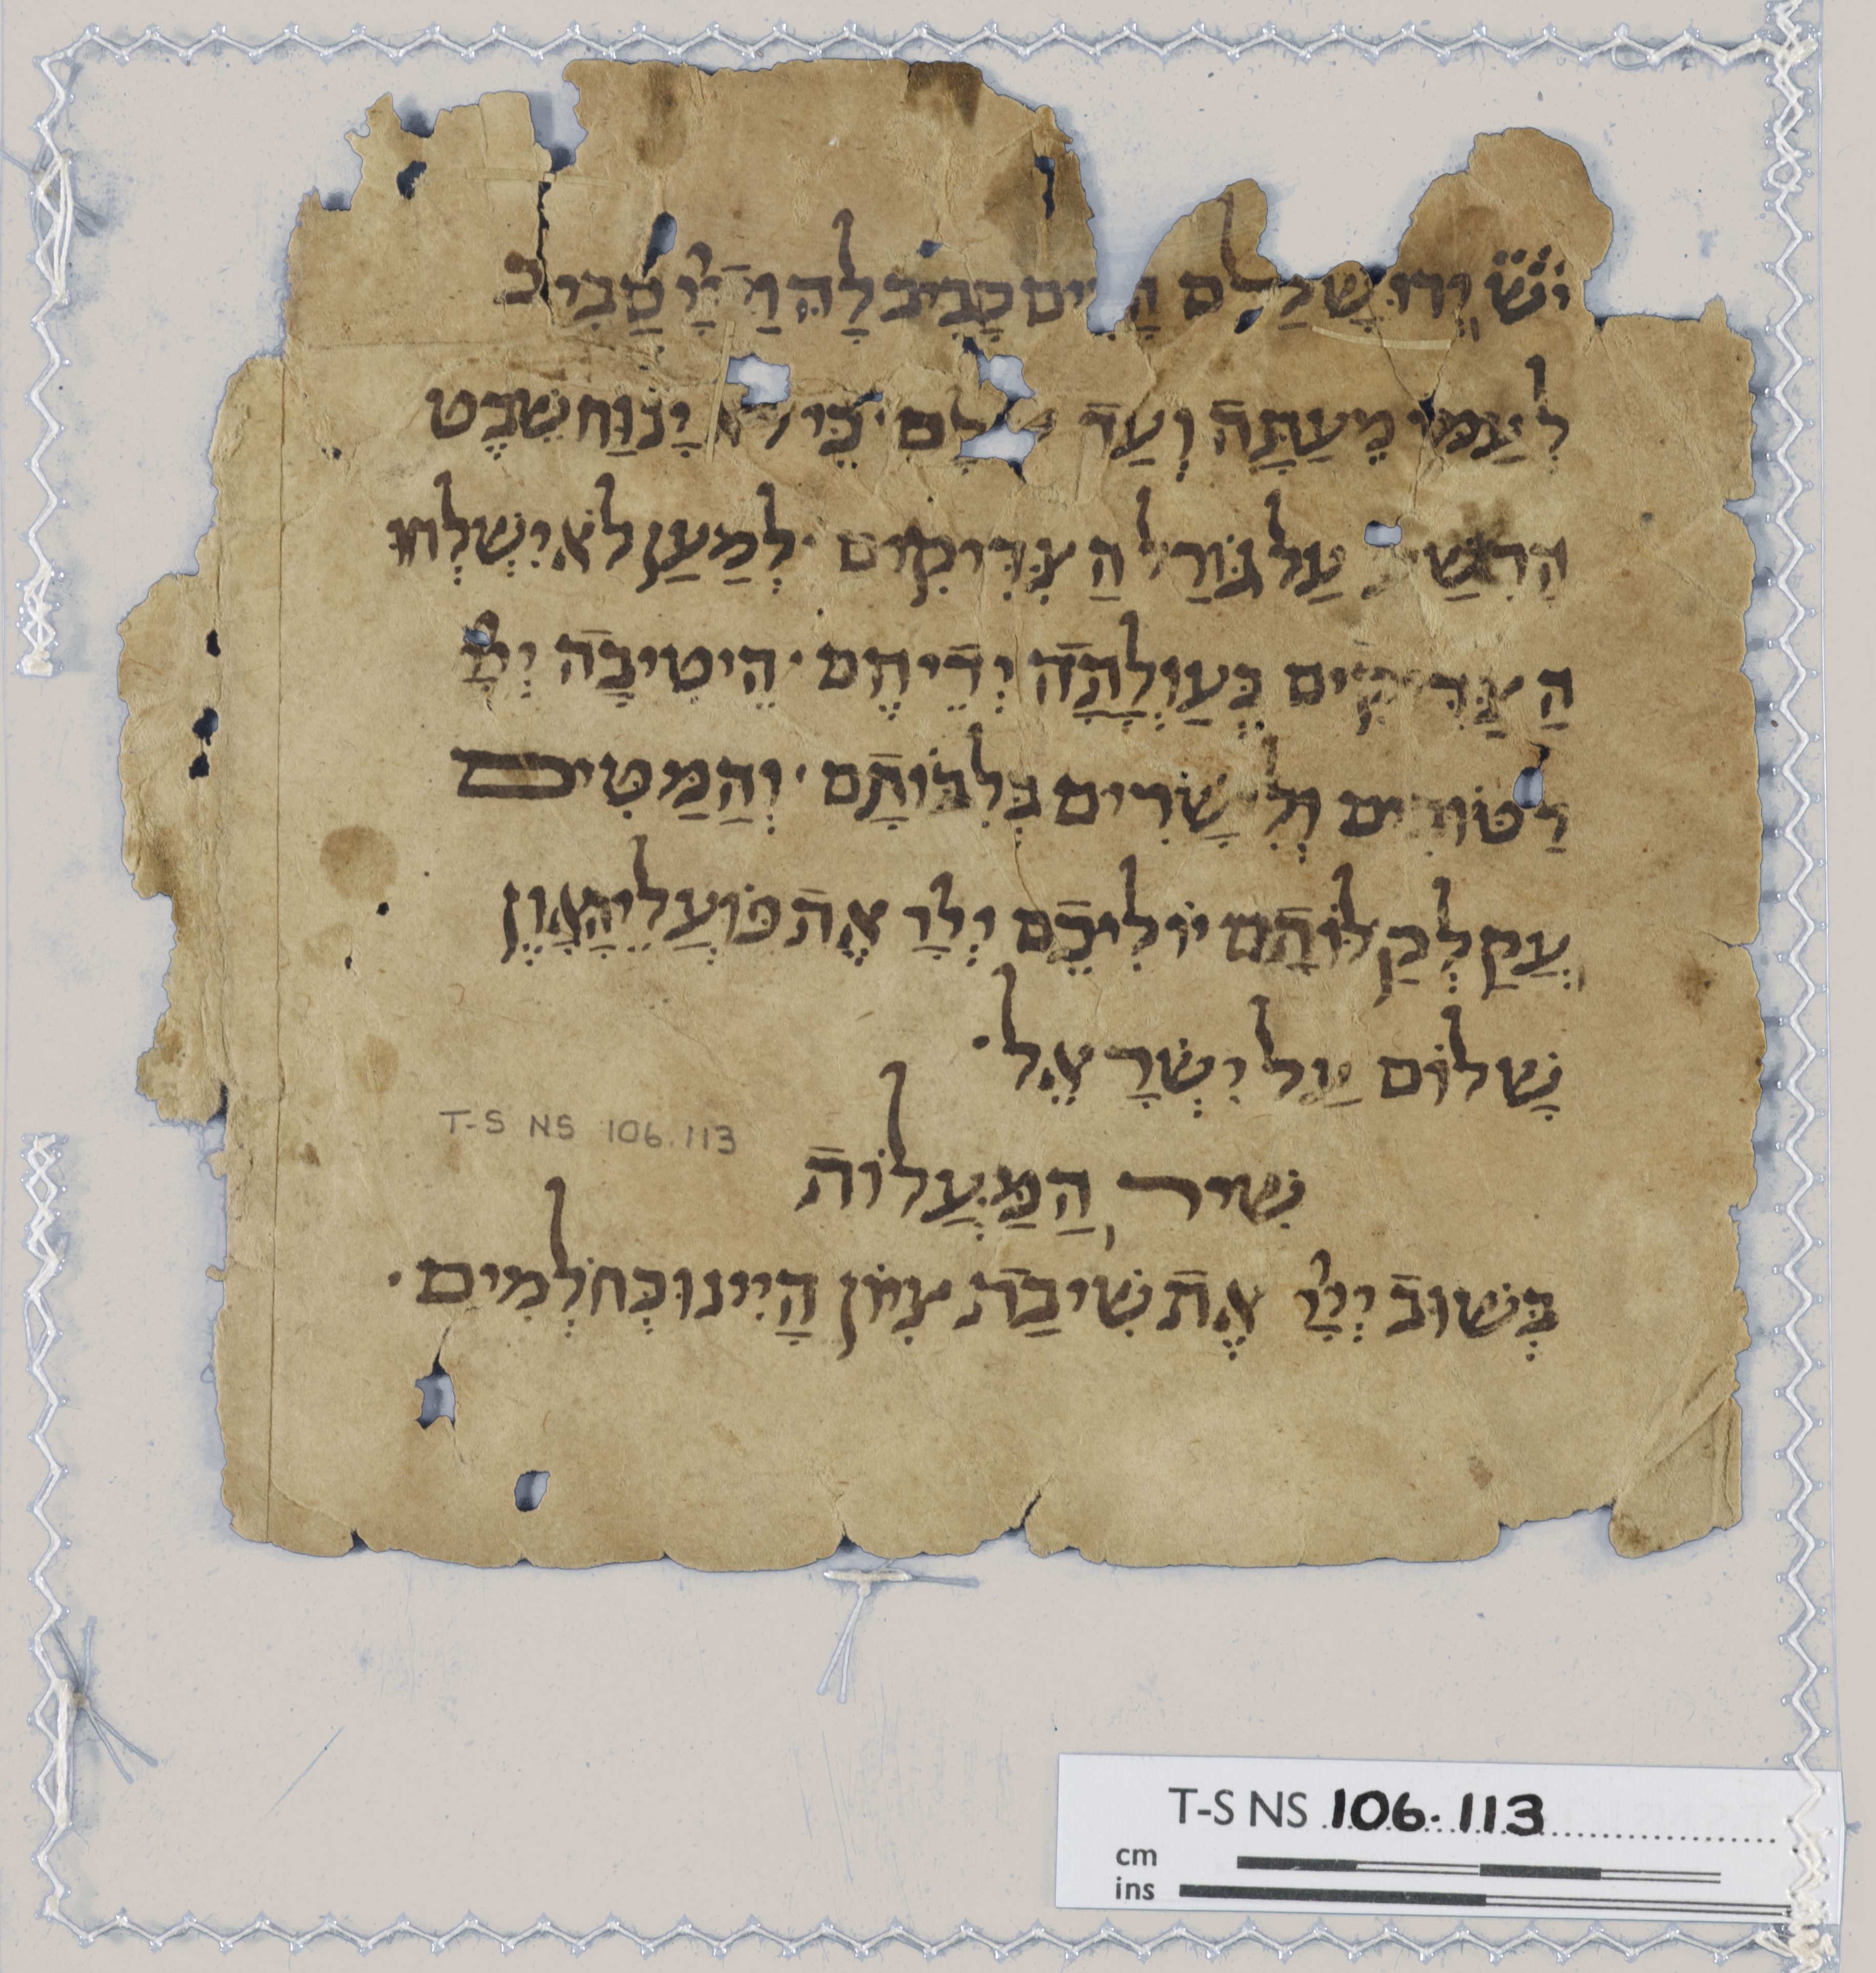 יש יְרוּשָׁלַ ם הָרִים סָבִיב לָהּ וַייָ סָבִיב
לְעַמּוֹ מֵעַתָּה וְעַד עולָם· כִּי לא יָנוּחַ שֵׁבֶט
הָרֶשַׁע עַל גּוֹרַל הַצַּדִּיקִים· לְמַעַן לֹא יִשְׁלְחוּ
הַצַּדִּיקִים בְּעַוְלָתָה יְדֵיהֶם· הֵיטִיבָה יְיָ
לַטּוֹבִים וְלִישָׁרִים בְּלִבּוֹתָם· וְהַמַּטִּים
עֲקַלְקַלּוֹתָם יוֹלִיכֵם יְיָ אֶת פּוֹעֲלֵי הָאָוֶן
שָׁלוֹם עַל יִשְׂרָאֵל·
T-S NS 106.113
שִׁיר הַמַּעֲלוֹת
בְּשׁוּב יְיָ אֶת שִׁיבַת צִיּוֹן הָיִינוּ כְּחֹלְמִים·
T-S NS 106.113
cm
ins